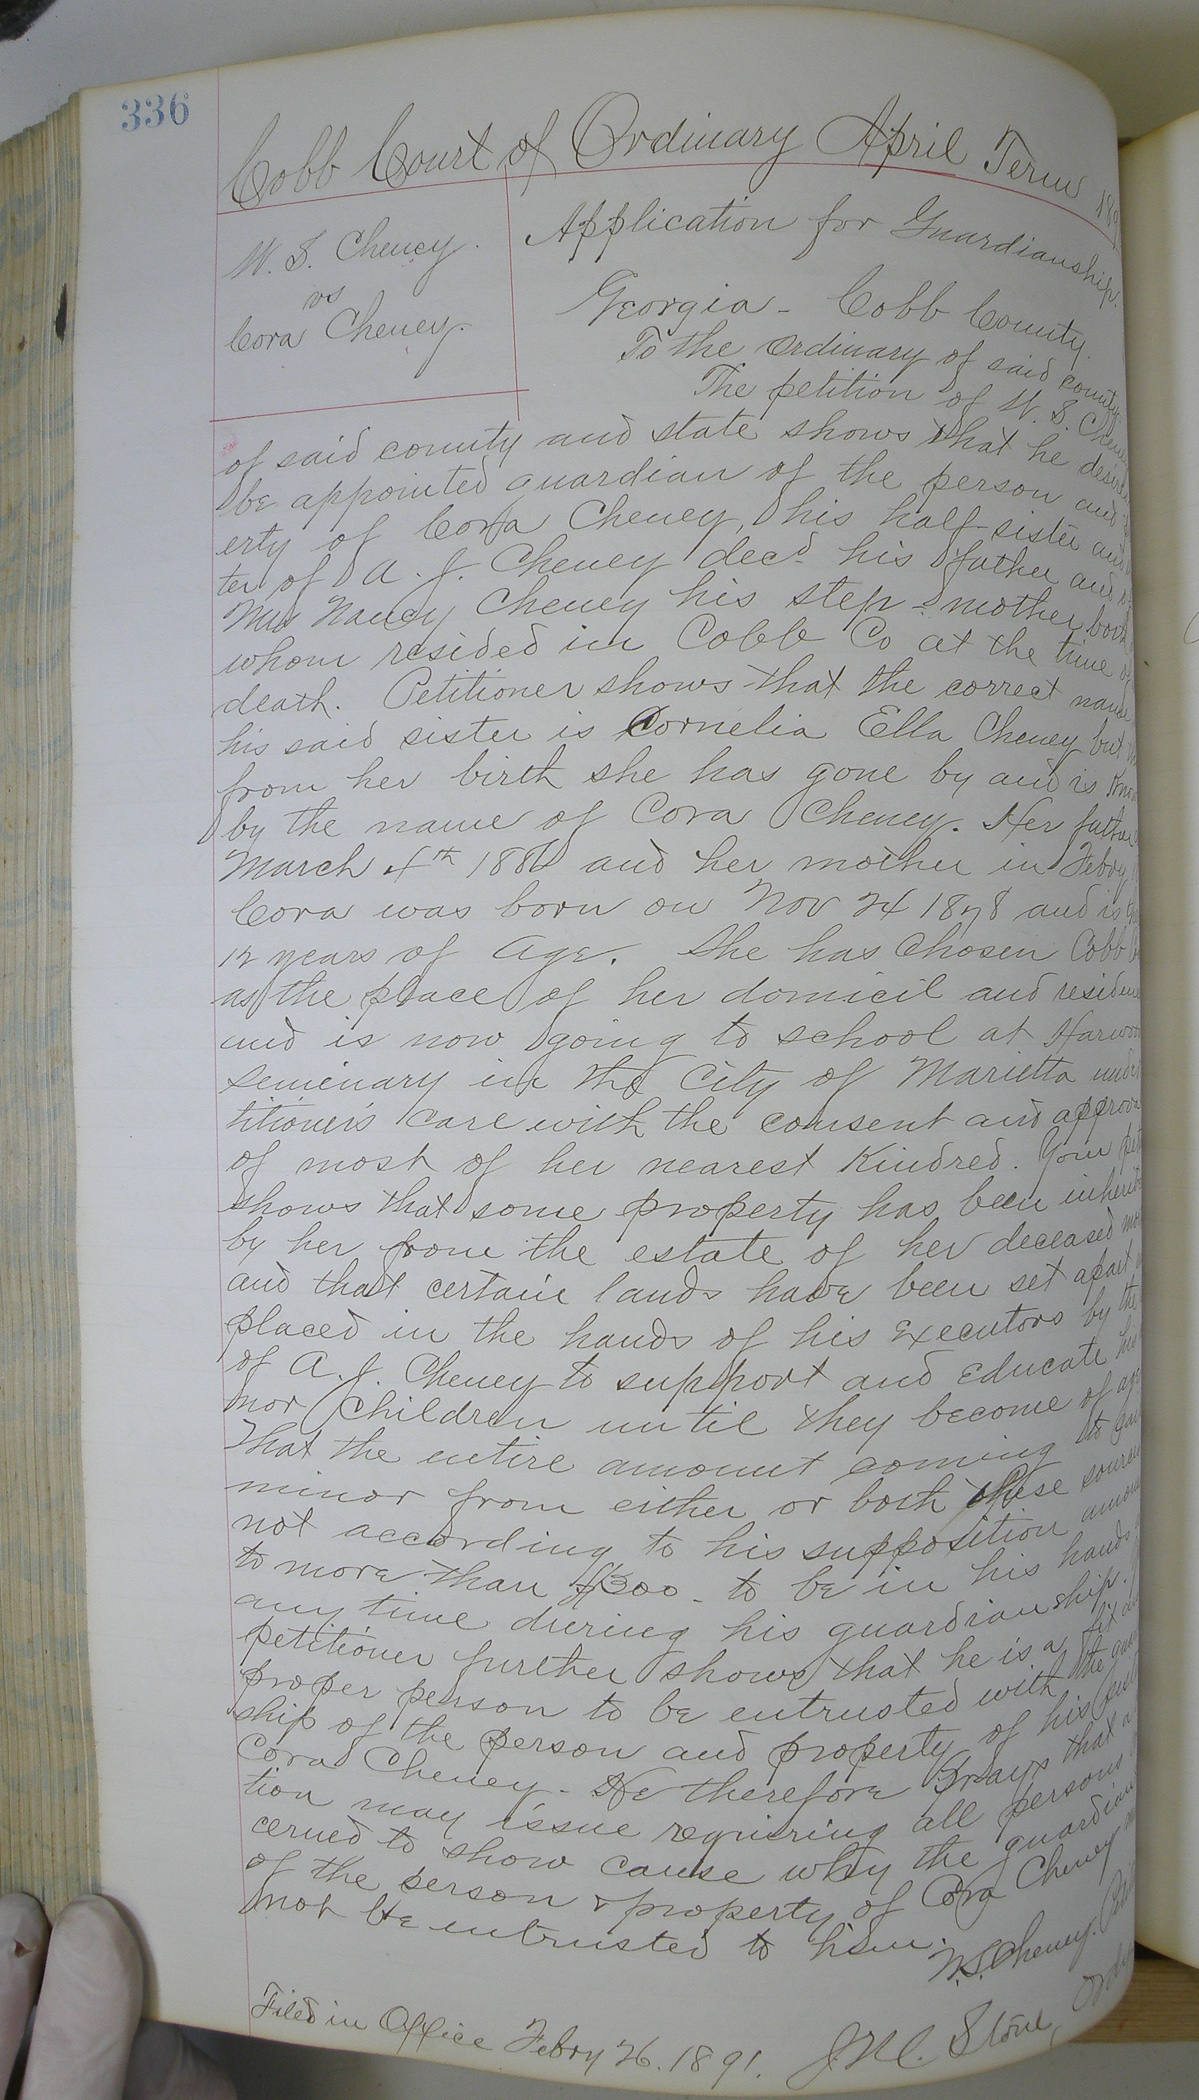 336
Cobb Court of Ordinary April Term 189
W. S. Cheney.
vs
Cora Cheney.
Application for Guardianship.
Georgia - Cobb County.
To the Ordinary of said county.
The petition of W. S. Cheney
of said county and state shows that he desires
be appointed guardian of the person and
erty of Cora Cheney, his half-sister and
ter of A. J. Cheney decd. his father and
Mrs Nancy Cheney his step-mother both
whom resided in Cobb Co at the time of
death. Petitioner shows that the correct name
his said sister is Cornelia Ella Cheney but
from her birth she has gone by and is know
by the name of Cora Cheney. Her father
March 4th and her mother in Febry
Cora was born on Nov 24 1878 and is
12 years of age. She has chosen Cobb Co
as the place of her domicil and residence
and is now going to school at Harwood
seminary in the City of Marietta under
titioner's care with the consent and approva
of most of her nearest kindred. Your pet
shows that some property has been inherite
by her from the estate of her deceased mo
and that certain lands have been set apart
placed in the hands of his executors by the
of A. J. Cheney to support and educate his
nor children until they become of age
That the entire amount coming to said
minor from either or both these sources
not according to his supposition amou
to more than $300 - to be in his hands
any time during his guardianship.
petitioner further shows that he is a fit
proper person to be entrusted with the guar
ship of the person and property of his sist
Cora Cheney - He therefore prays that
tion may issue requiring all persons
cerned to show cause why the guardian
of the person & property of Cora Cheney
not be entrusted to him.
W. S. Cheney.
Filed in Office Febry 26. 1891. J. M. Stone, Ordy